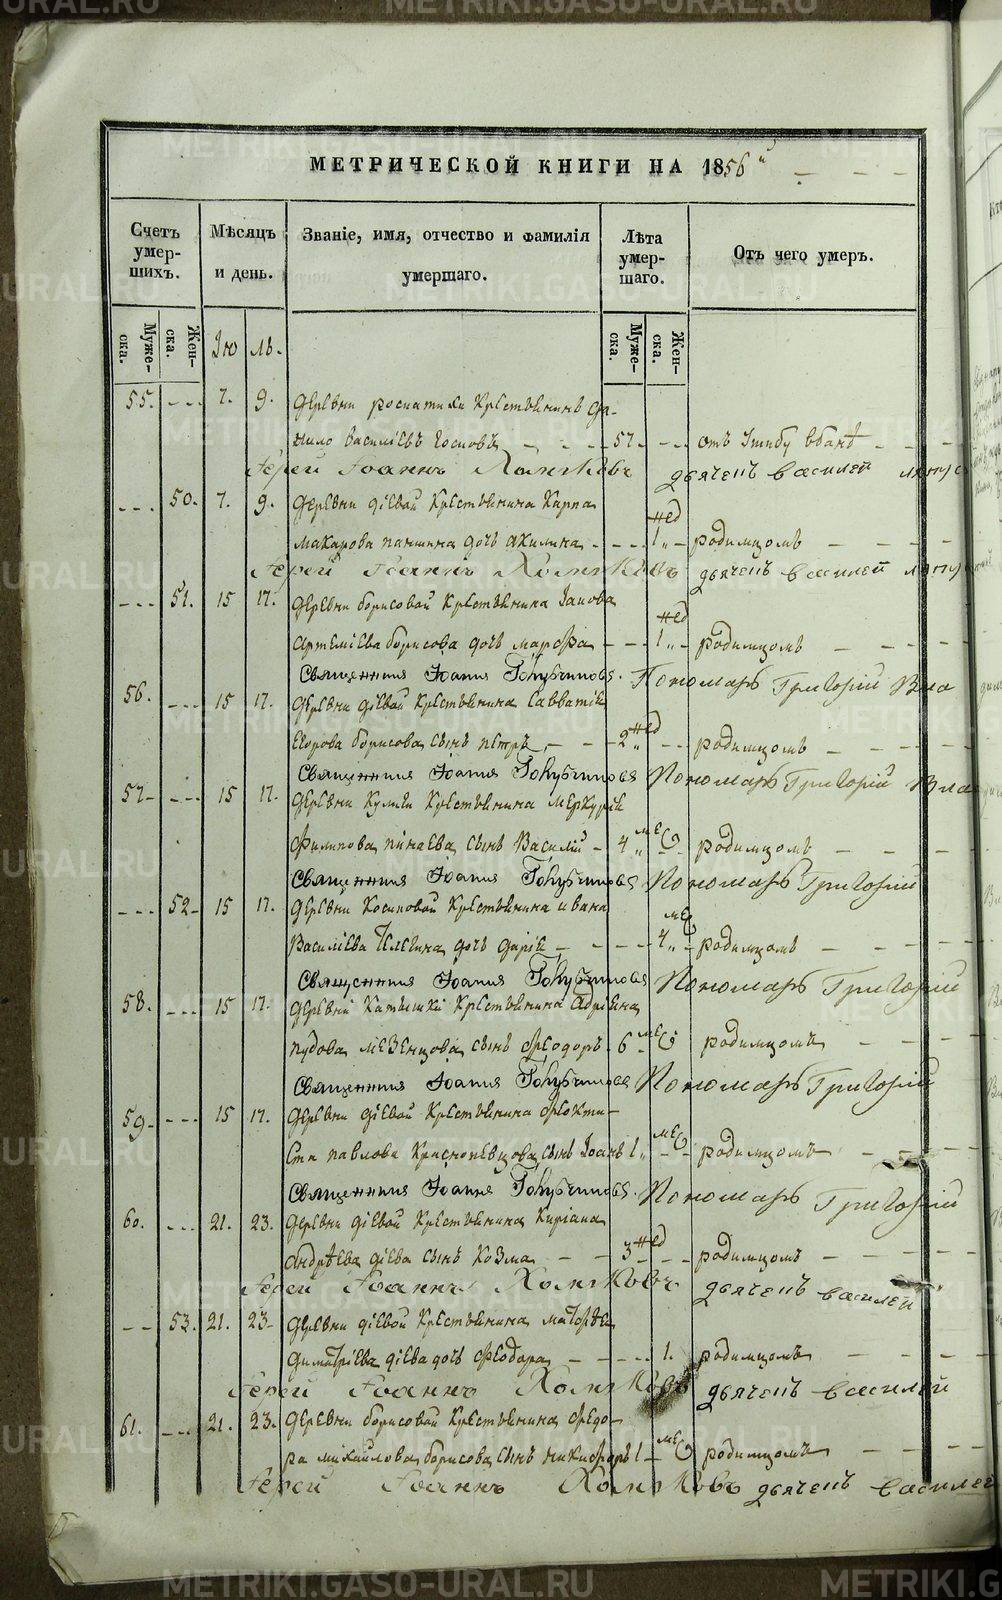 МЕТРИЧЕСКОЙ КНИГИ НА 1856й
Счетъ умер-шихъ.
Мѣсяцъ и день.
Званіе, имя, отчество и фамилія умершаго.
Лѣта умер-шаго.
Отъ чего умеръ.
Муже-ска.
Жен-ска.
Iю ль.
Муже-ска.
Жен-ска.
55. 7. 9. Деревни крестьянинъ Да-
нило Васильевъ 57. отъ ушибу
Іерей Іоаннъ Хомяковъ дьячепъ Василей
50. 7. 9. Деревни Діевой Крестьянина Карпа
нед
Макарова паншина дочь Акилина 1 родимцомъ
Іерей Іоаннъ Хомяковъ дьячепъ Василей
51. 15 17. Деревни Борисовой Крестьянина
нед
Артеміева Борисова дочь Марфа 1 родимцомъ
Священникъ Іоаннъ Голубчиковъ. Пономарь Григорій
56. 15 17. Деревни Діевой Крестьянина Савватіи
Егорова Борисова сынъ Петръ 2 нед родимцомъ
Священникъ Іоаннъ Голубчиковъ Пономарь Григорій
57 15 17. Деревни Крестьянина Меркурія
Филипова пинаева сынъ Василій 4 мес родимцомъ
Священникъ Іоаннъ Голубчиковъ Пономарь Григорій
52 15 17. Деревни Косиковой Крестьянина Ивана
мес
Васильева Телегина дочь Дарія 4 родимцомъ
Священникъ Іоаннъ Голубчиковъ Пономарь Григорій
58. 15 17. Деревни Крестьянина Адріана
Пудова Мезенцова сынъ Феодоръ 6 мес родимцомъ
Священникъ Іоаннъ Голубчиковъ Пономарь Григорій
59. 15 17. Деревни Діевой Крестьянина Фокти-
ста Павлова Краснопевцова сынъ Іоанъ 1 мес родимцомъ
Священникъ Іоаннъ Голубчиковъ. Пономарь Григорій
60. 21. 23. Деревни Діевой Крестьянина Киріана
Андрѣева Діева сынъ Козма 3 нед родимцомъ
Іерей Іоаннъ Хомяковъ дьячепъ Василей
53. 21. 23 Деревни Діевой Крестьянина Матѳѣя
Димитріева Діева дочь Феодора 1. родимцомъ
Іерей Іоаннъ Хомяковъ дьячепъ Василей
61. 21. 23. Деревни Борисовой Крестьянина Федо-
ра Михайлова Борисова сынъ Никифоръ 1 мес родимцомъ
Іерей Іоаннъ Хомяковъ дьячепъ Василей
METRIKI.GASO-URAL.RU